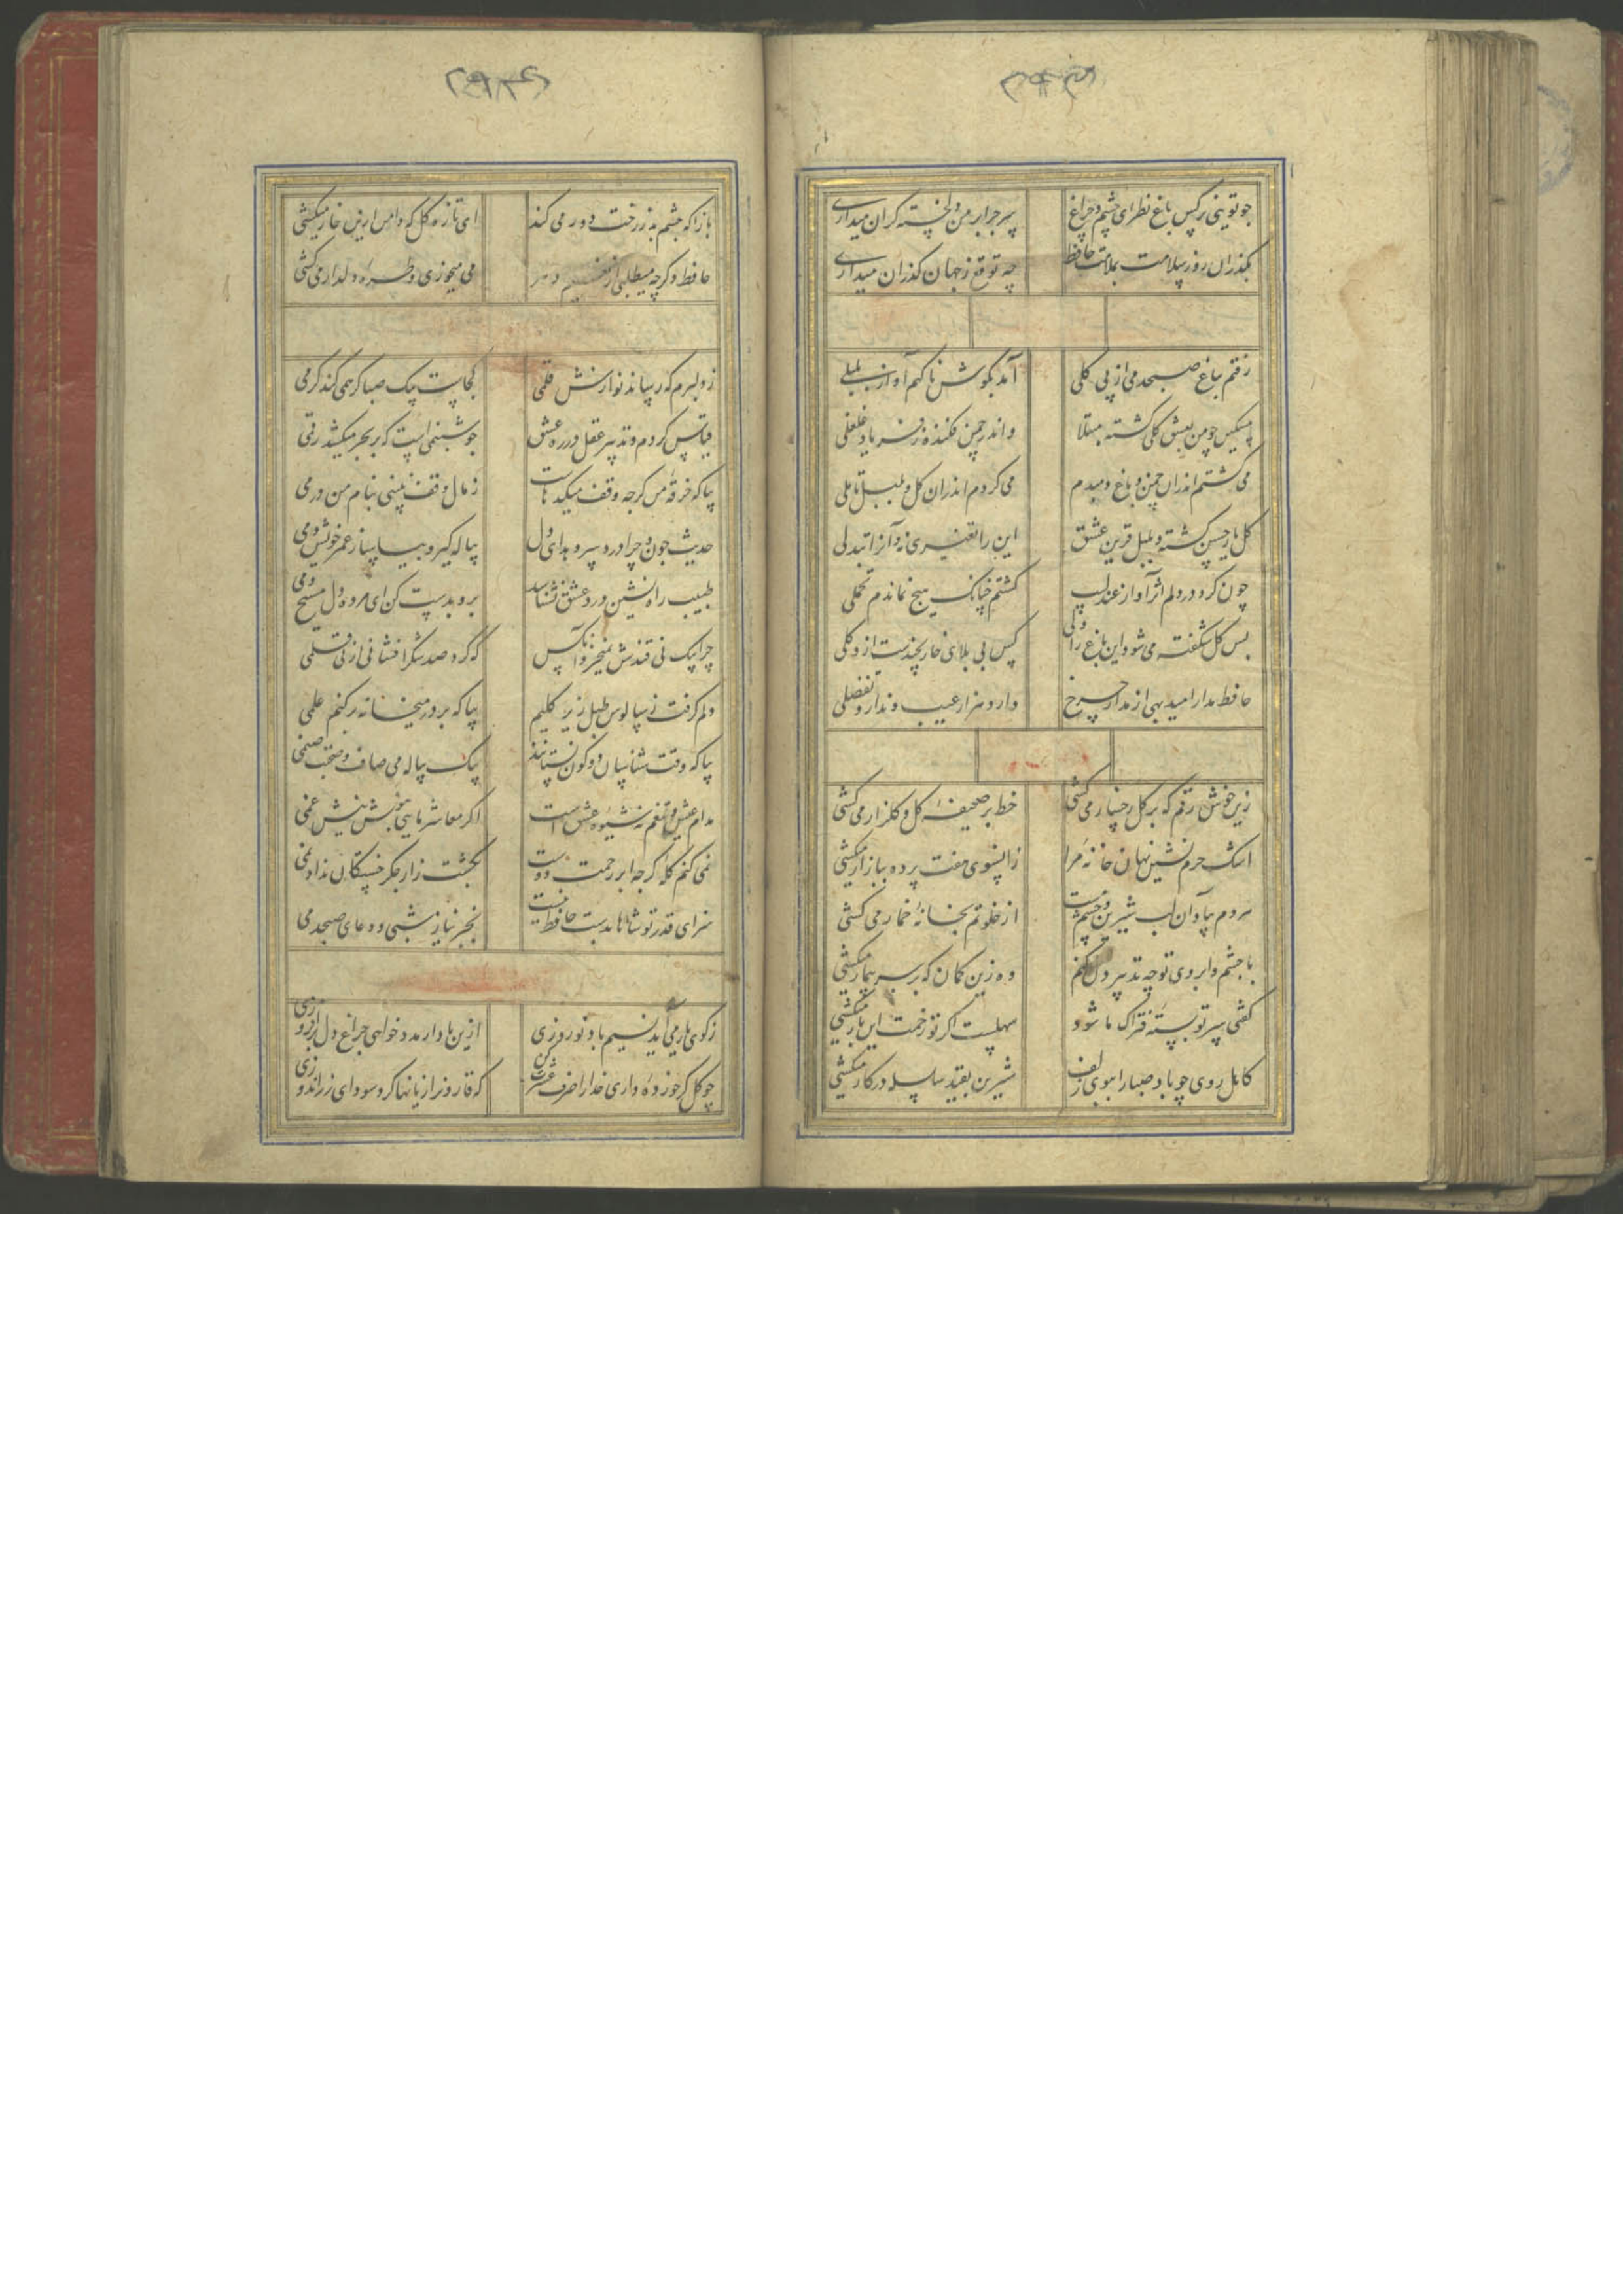 جو تویی نرکس باغ نظر ای چشم و چراغ
سر جرا بر من دلخسته کران میداری
بکذران روز سلامت بملامت حافظ
چه توقع ز جهان کذران میداری
رفتم بباغ صبحدمی از پی کلی
آمد بکوش ناکهم آواز بلبلی
مسکین جو من بعشق کلی کشته مبتلا
و اندر چمن فکنده ز فریاد غلغلی
می کشتم اندران چمن و باغ و مبدم
می کردم اندران کل و بلبل تاملی
کل یار حسن کشته و بلبل قرین عشق
این را تغیری نه و آنرا تبدلی
چون کرد در دلم اثر آواز عندلیب
کشتم چنانک هیچ نماندم تحملی
بس کل شکفته می شود این باغ را ولی
کس بی بلای خار نچیدست ازو کلی
حافظ مدار امید بهی از مدار چرخ
دارد هزار عیب و ندارد تفضلی
زین خوش رقم که بر کل رخسار می کشی
خط بر صحیفه کل و کلزار می کشی
اشک حرم نشین نهان خانه مرا
زانسوی هفت پرده ببازار میکشی
هر دم بیاد آن لب شیرین و چشم مست
از خلوتم بخانه خمار می کشی
با چشم و ابروی تو چه تدبیر دل کنم
وه زین کمان که بر سر بیمار میکشی
کفتی سر تو بسته فتراک ما شود
سهلست اکر تو زحمت این بار میکشی
کاهل روی چو باد صبا را ببوی زلف
شیرین بقید سلسله در کار میکشی
بازا که چشم بد ز رخت دور می کند
ای تازه کل که دامن ازین خار میکشی
حافظ دکر چه میطلبی از نعیم دهر
می میخوری و طره دلدار می کشی
ز دلبرم که رساند نوازش قلمی
کجاست پیک صبا کر همی کند کرمی
قیاس کردم و تدبیر عقل در ره عشق
جو شبنمی است که بر بحر میکشد رقمی
بیا که خرقه من کرجه وقف میکدهاست
ز مال وقف نبینی بنام من درمی
حدیث جون و چرا درد سر دهد ای دل
پیاله کیر و بیاساز عمر خویش دمی
طبیب راه نشین درد عشق نشناسد
برو بدست کن ای مرده دل مسیح دمی
چرا بیک نی قندش نمیخرند آنکس
که کرد صد شکر افشانی از نی قلمی
دلم کرفت ز سالوس طبل زیر کلیم
بیا که بر در میخانه برکنم علمی
بیا که وقت شناسان دو کون نستانند
بیک پیاله می صاف و صحبت صنمی
مدام عیش و تنعم نه شیوه عشق است
اکر معاشر مایی بنوش نیش غمی
نمی کنم کله کرجه ابر رحمت دوست
بکشت زار جکر خستکان نداد نمی
سزای قدر تو شاها بدست حافظ نیست
بجز نیاز شبی و دعای صبحدمی
ز کوی یار می آید نسیم باد نوروزی
ازین باد ار مدد خواهی جراغ دل برافروزی
چو کل کر خورده داری خدا را صرف عشرت کن
که قارون را زیانها کرد سودای زراندوزی